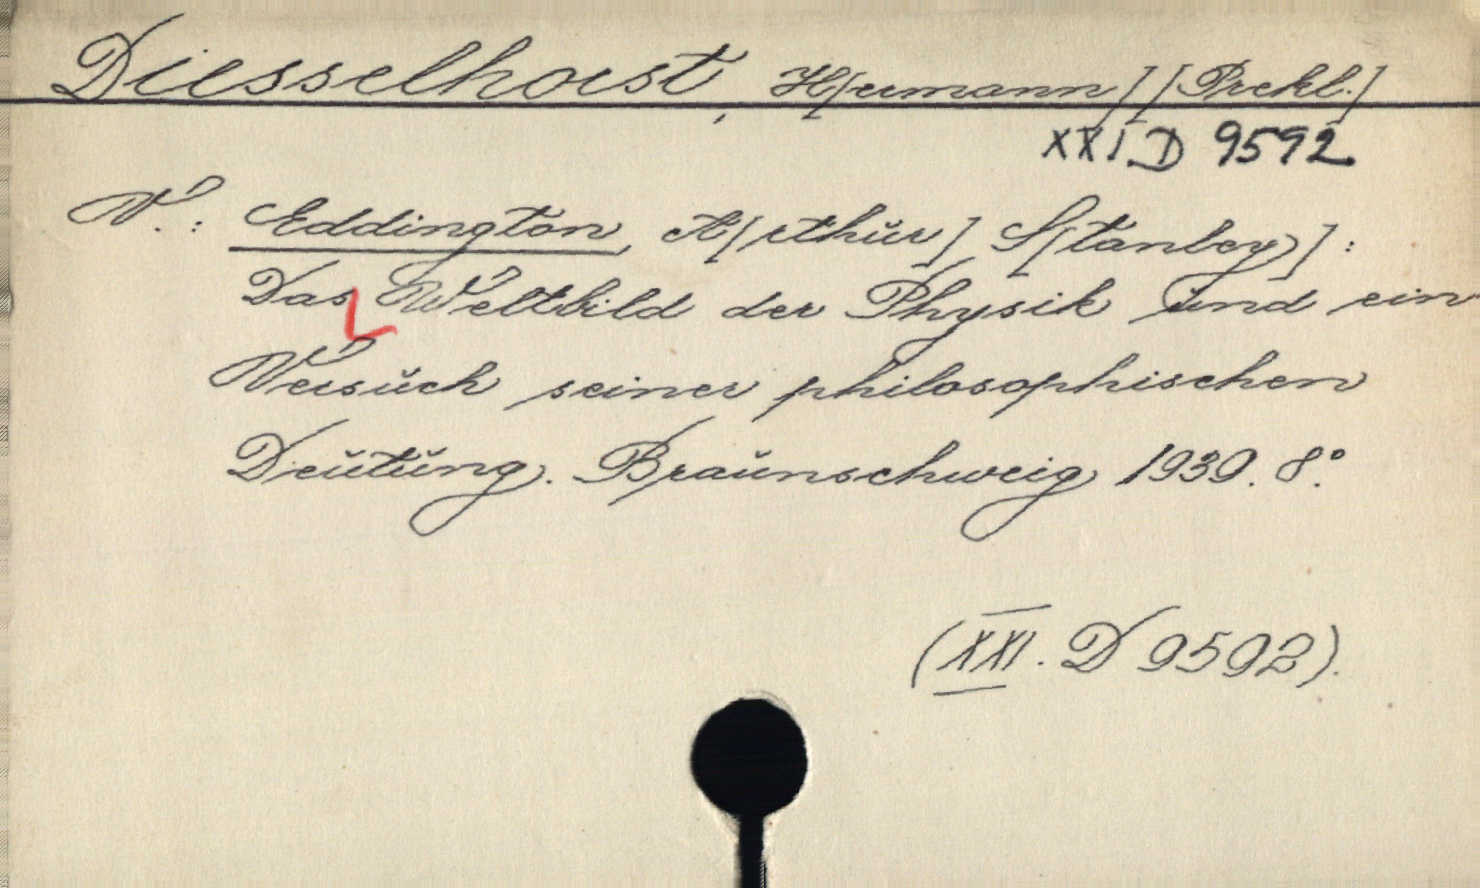 Diesselhorst, H[ermann] [Překl.]
XXI D 9592
V.: Eddington, A[rthur] S[tanley]:
Das Weltbild der Physik und ein
Versuch seiner philosophischen
Deutung. Braunschweig 1939. 8°.
(XXI. D 9592).